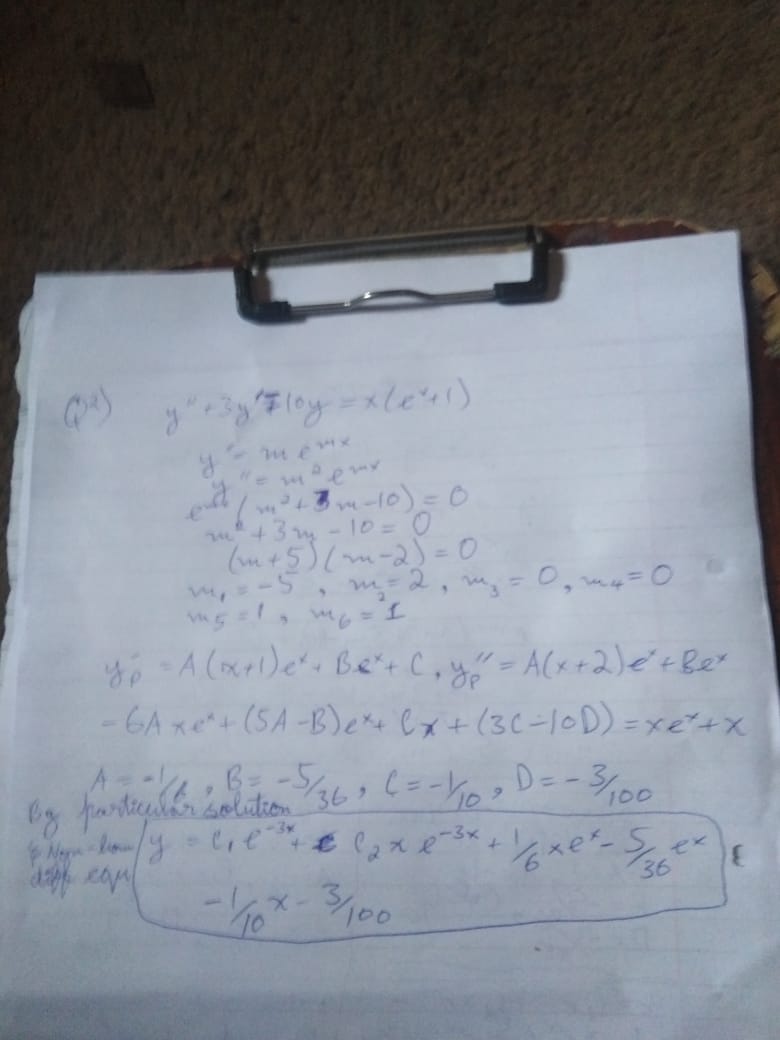 Q2) y'' + 3y' - 10y = x(e^x + 1)
y' = m e^{mx}
y'' = m² e^{mx}
e^{mx} (m² + 3m - 10) = 0
m² + 3m - 10 = 0
(m+5)(m-2) = 0
m₁ = -5, m₂ = 2, m₃ = 0, m₄ = 0
m₅ = 1, m₆ = 1
y'_p = A(x+1)e^x + Be^x + C, y_p'' = A(x+2)e^x + Be^x
-6Axe^x + (5A-B)e^x + Cx + (3C-10D) = xe^x + x
A = -1/6, B = -5/36, C = -1/10, D = -3/100
By particular solution
diff equ
y = C₁e^{-3x} + C₂xe^{-3x} + 1/6 xe^x - 5/36 e^x
-1/10 x - 3/100